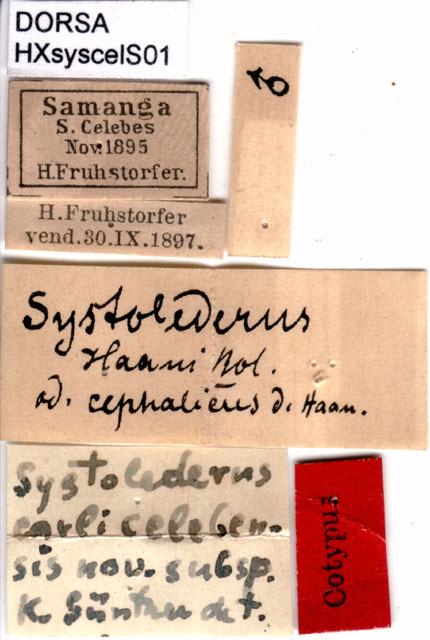 DORSA
HXsyscelS01
♂
Samanga
S. Celebes
Nov. 1895
H. Fruhstorfer.
H. Fruhstorfer
vend. 30. IX. 1897.
Systolederus
Haani Bol.
od. cephalicus d. Haan.
Systolederus
carli celeben-
sis nov. subsp.
K. Günther det.
Cotypus